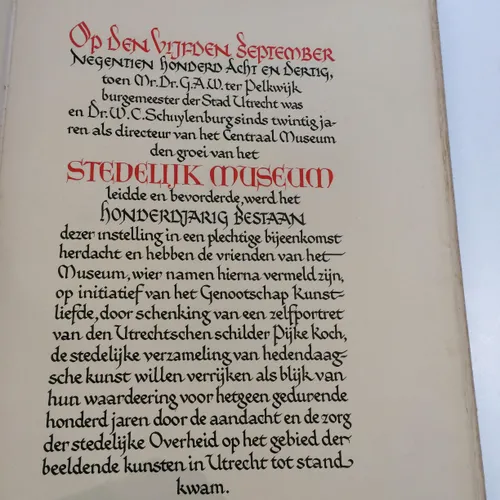 Op den vijfden September
Negentien honderd acht en dertig,
toen Mr. Dr. G.A.W. ter Pelkwijk
burgemeester der Stad Utrecht was
en Dr. W. C. Schuylenburg sinds twintig ja-
ren als directeur van het Centraal Museum
den groei van het
STEDELIJK MUSEUM
leidde en bevorderde, werd het
HONDERDJARIG BESTAAN
dezer instelling in een plechtige bijeenkomst
herdacht en hebben de vrienden van het
Museum, wier namen hierna vermeld zijn,
op initiatief van het Genootschap Kunst-
liefde, door schenking van een zelfportret
van den Utrechtschen schilder Pijke Koch,
de stedelijke verzameling van hedendaag-
sche kunst willen verrijken als blijk van
hun waardeering voor hetgeen gedurende
honderd jaren door de aandacht en de zorg
der stedelijke Overheid op het gebied der
beeldende kunsten in Utrecht tot stand
kwam.